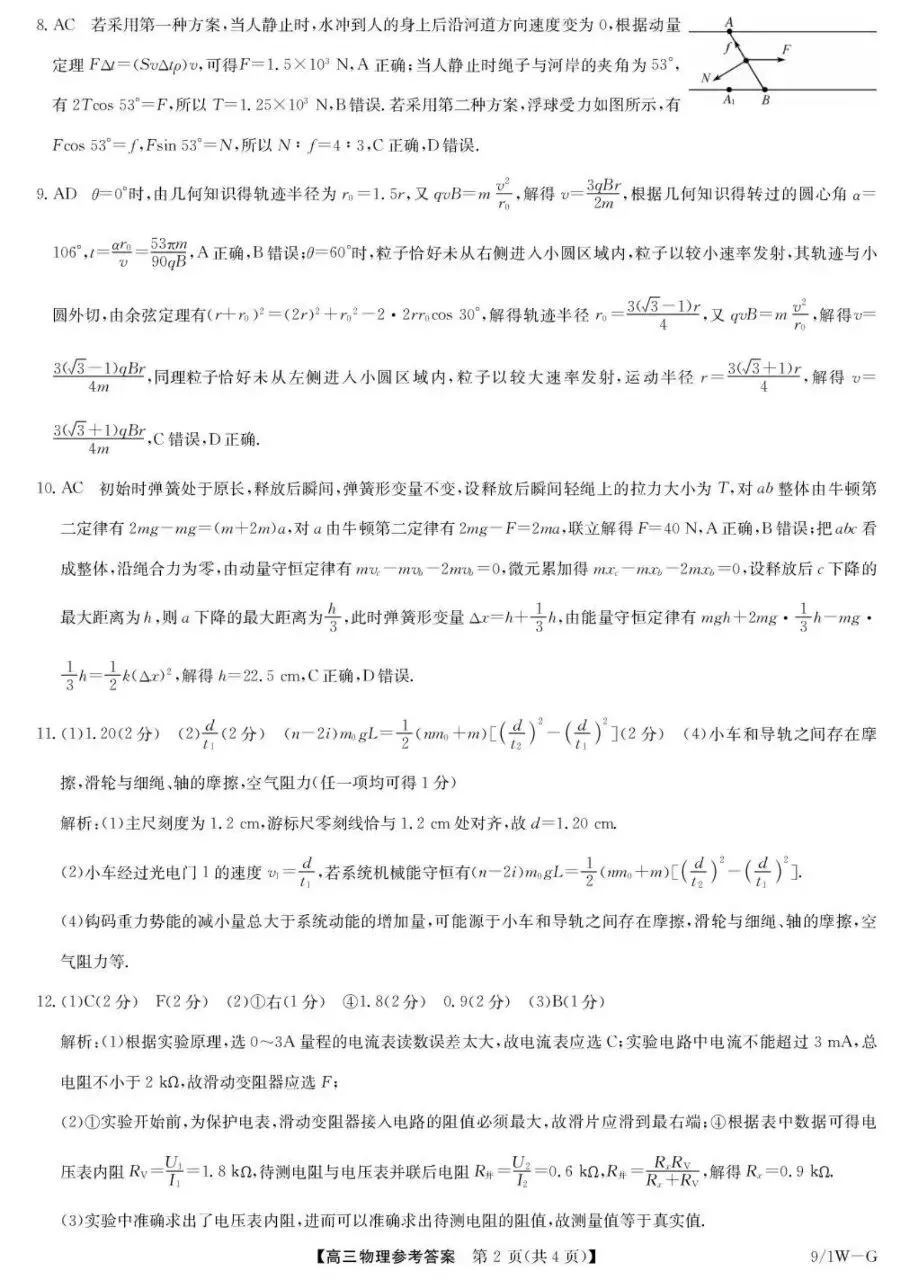 8. AC 若采用第一种方案,当人静止时,水冲到人的身上后沿河道方向速度变为 0,根据动量
定理 FΔt=(SvΔtρ)v,可得F=1.5×10³ N,A 正确;当人静止时绳子与河岸的夹角为 53°,
有 2Tcos 53°=F,所以 T=1.25×10³ N,B错误.若采用第二种方案,浮球受力如图所示,有
Fcos 53°=f,Fsin 53°=N,所以 N∶f=4∶3,C 正确,D错误.
A
f
F
N
A₁ B
9. AD θ=0°时,由几何知识得轨迹半径为 r₀=1.5r,又 qvB=m v²/r₀,解得 v=3qBr/2m,根据几何知识得转过的圆心角 α=
106°,t=αr₀/v=53πm/90qB,A 正确,B 错误;θ=60°时,粒子恰好未从右侧进入小圆区域内,粒子以较小速率发射,其轨迹与小
圆外切,由余弦定理有(r+r₀)²=(2r)²+r₀²-2·2rr₀cos 30°,解得轨迹半径 r₀=3(√3-1)r/4,又 qvB=m v²/r₀,解得v=
3(√3-1)qBr/4m,同理粒子恰好未从左侧进入小圆区域内,粒子以较大速率发射,运动半径 r=3(√3+1)r/4,解得 v=
3(√3+1)qBr/4m,C 错误,D 正确.
10. AC 初始时弹簧处于原长,释放后瞬间,弹簧形变量不变,设释放后瞬间轻绳上的拉力大小为 T,对 ab 整体由牛顿第
二定律有 2mg-mg=(m+2m)a,对 a 由牛顿第二定律有 2mg-F=2ma,联立解得 F=40 N,A 正确,B 错误;把 abc 看
成整体,沿绳合力为零,由动量守恒定律有 mv_c-mv_b-2mv_b=0,微元累加得 mx_c-mx_b-2mx_b=0,设释放后 c 下降的
最大距离为 h,则 a 下降的最大距离为h/3,此时弹簧形变量 Δx=h+1/3h,由能量守恒定律有 mgh+2mg·1/3h-mg·
1/3h=1/2k(Δx)²,解得 h=22.5 cm,C 正确,D 错误.
11. (1)1.20(2 分) (2)d/t₁(2 分) (n-2i)m₀gL=1/2(nm₀+m)[(d/t₂)²-(d/t₁)²](2 分) (4)小车和导轨之间存在摩
擦,滑轮与细绳、轴的摩擦,空气阻力(任一项均可得 1 分)
解析:(1)主尺刻度为 1.2 cm,游标尺零刻线恰与 1.2 cm 处对齐,故 d=1.20 cm.
(2)小车经过光电门 1 的速度 v₁=d/t₁,若系统机械能守恒有(n-2i)m₀gL=1/2(nm₀+m)[(d/t₂)²-(d/t₁)²].
(4)钩码重力势能的减小量总大于系统动能的增加量,可能源于小车和导轨之间存在摩擦,滑轮与细绳、轴的摩擦,空
气阻力等.
12. (1)C(2 分) F(2 分) (2)①右(1 分) ④1.8(2 分) 0.9(2 分) (3)B(1 分)
解析:(1)根据实验原理,选 0~3A 量程的电流表读数误差太大,故电流表应选 C;实验电路中电流不能超过 3 mA,总
电阻不小于 2 kΩ,故滑动变阻器应选 F;
(2)①实验开始前,为保护电表,滑动变阻器接入电路的阻值必须最大,故滑片应滑到最右端;④根据表中数据可得电
压表内阻 R_V=U₁/I₁=1.8 kΩ,待测电阻与电压表并联后电阻 R_并=U₂/I₂=0.6 kΩ,R_并=RₓR_V/(Rₓ+R_V),解得 Rₓ=0.9 kΩ.
(3)实验中准确求出了电压表内阻,进而可以准确求出待测电阻的阻值,故测量值等于真实值.
【高三物理参考答案 第 2 页(共 4 页)】 9/1W-G